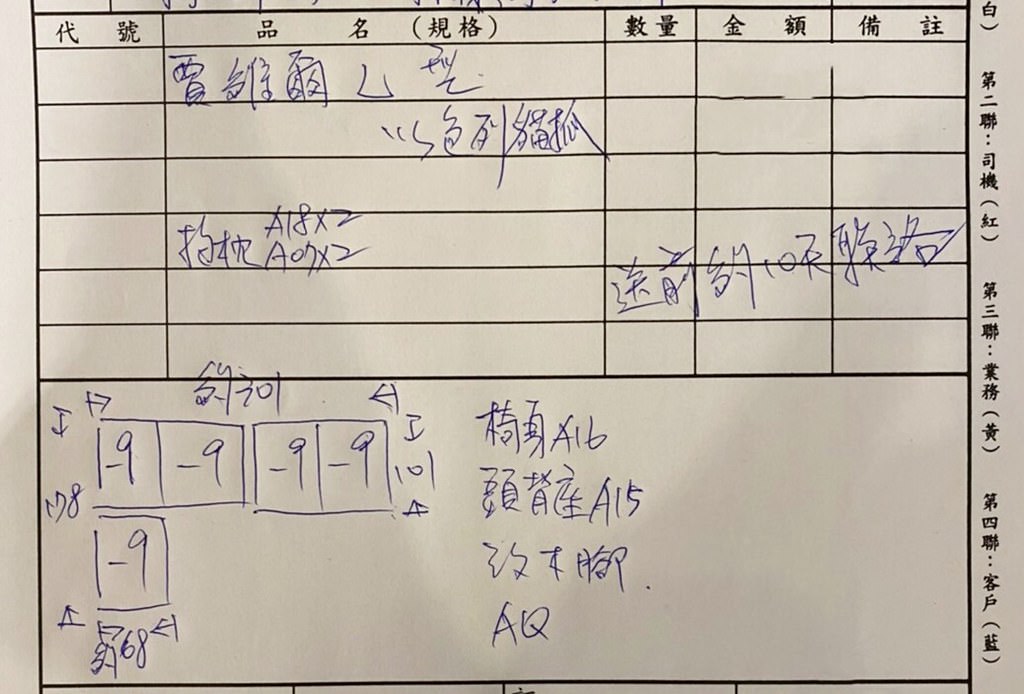 代號 品名(規格) 數量 金額 備註
賈維爾 乙型
以色列貓抓
抱枕 A18x2
A07x2
送前約10天聯絡
約301
-9 -9 -9 -9
101
178
-9
約68
椅身A16
頭背座A15
改木腳.
AQ
白)
第二聯:司機(紅)
第三聯:業務(黃)
第四聯:客戶(藍)